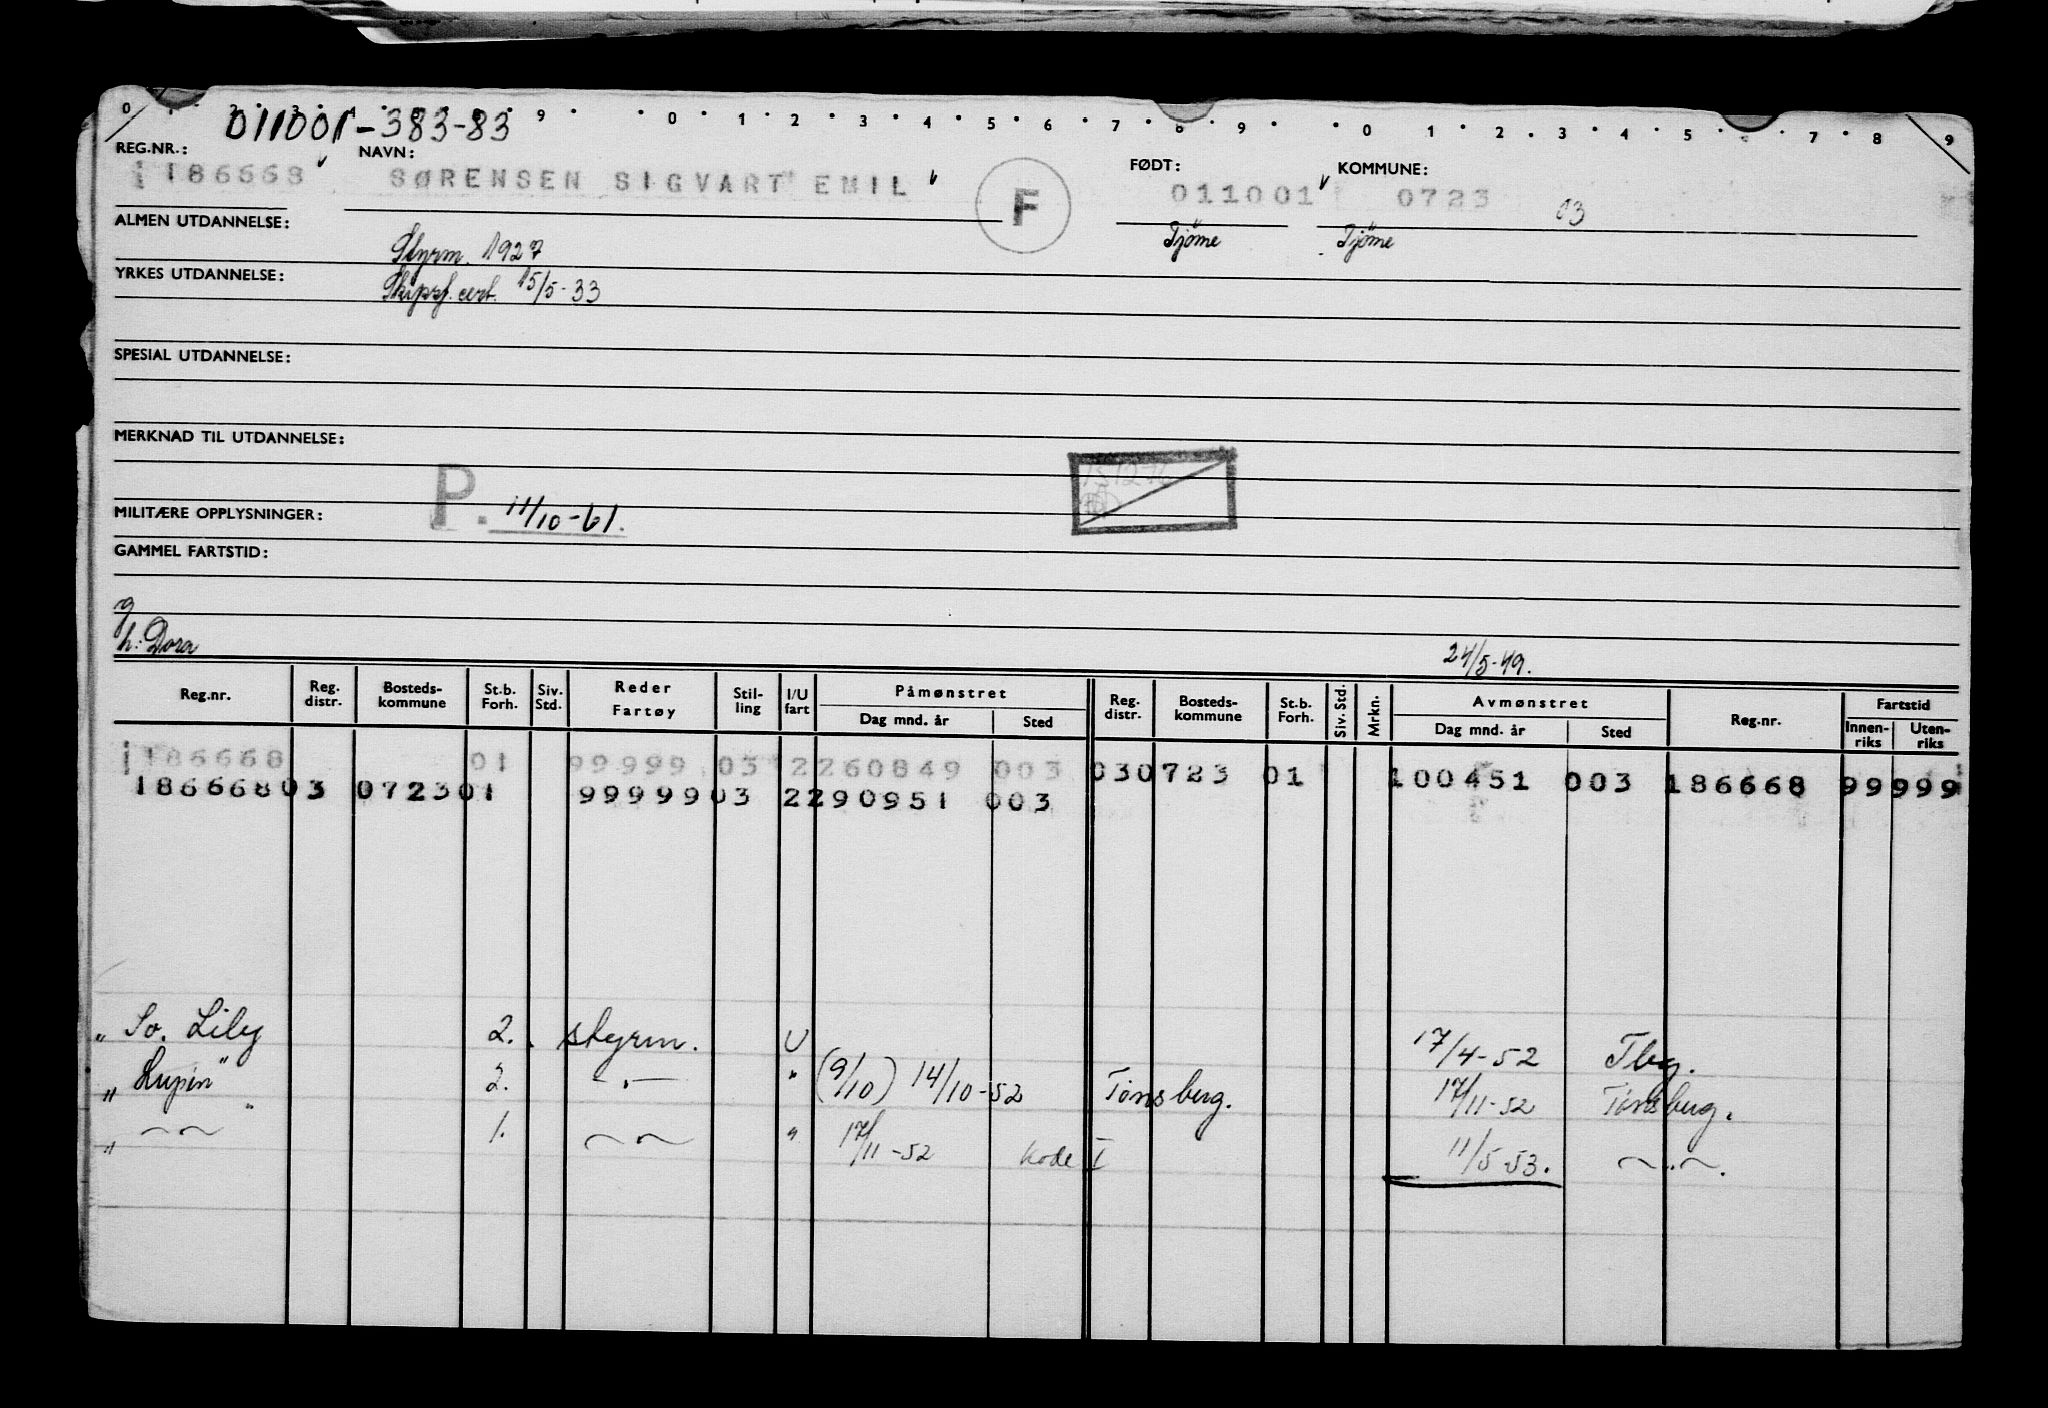 0 1 2 3 9 0 1 2 3 4 5 6 7 8 9 0 1 2 3 4 5 7 8 9
011001-383-83
REG.NR.: NAVN: FØDT: KOMMUNE:
186668 SØRENSEN SIGVART EMIL F 011001 0723 03
ALMEN UTDANNELSE: Tjöme Tjöme
Styrm. 1927
YRKES UTDANNELSE:
Skipsf. cert. 15/5-33
SPESIAL UTDANNELSE:
MERKNAD TIL UTDANNELSE:
MILITÆRE OPPLYSNINGER: P. 11/10-61.
GAMMEL FARTSTID:
g
h: Dora 24/5-49.
Reg.nr. Reg. distr. Bosteds-kommune St.b. Forh. Siv. Std. Reder Fartøy Stil-ling I/U fart Påmønstret Reg. distr. Bosteds-kommune St.b. Forh. Siv. Std. Mrkn. Avmønstret Reg.nr. Fartstid
Dag mnd. år Sted Dag mnd. år Sted Innen-riks Uten-riks
186668 01 99999 03 2260849 003 030723 01 100451 003 186668 99999
18666803 072301 9999903 2290951 003
" So. Lily 2. styrm. U 17/4-52 Tbg.
" Lupin" 2. -"- " (9/10) 14/10-52 Tönsberg. 17/11-52 Tönsberg.
" -"- 1. -"- " 17/11-52 kode I 11/5-53. -"-.